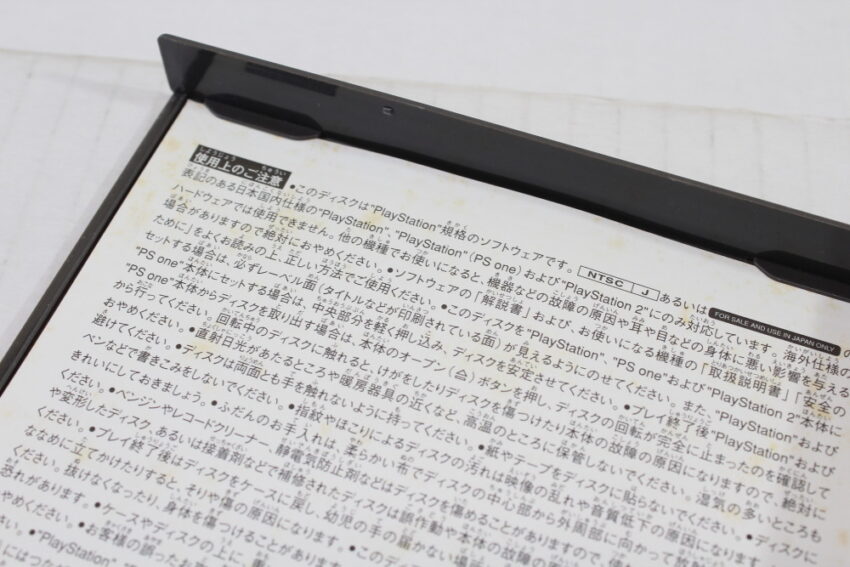 使用上のご注意 ●このディスクは"PlayStation"規格のソフトウェアです。 NTSC J あるいは FOR SALE AND USE IN JAPAN ONLY の
表記のある日本国内仕様の"PlayStation"、"PlayStation"(PS one)および"PlayStation 2"にのみ対応しています。海外仕様の
ハードウェアでは使用できません。他の機種でお使いになると、機器などの故障の原因や耳や目などの身体に悪い影響を与える
場合がありますので絶対におやめください。●ソフトウェアの「解説書」および、お使いになる機種の「取扱説明書」「安全の
ために」をよくお読みの上、正しい方法でご使用ください。●このディスクを"PlayStation"、"PS one"および"PlayStation 2"本体に
セットする場合は、必ずレーベル面(タイトルなどが印刷されている面)が見えるようにのせてください。また、"PlayStation"および
"PS one"本体にセットする場合は、中央部分を軽く押し込み、ディスクを安定させてください。●プレイ終了後"PlayStation"および
"PS one"本体からディスクを取り出す場合は、本体のオープン(
)ボタンを押し、ディスクの回転が完全に止まったのを確認して
から行ってください。回転中のディスクに触れると、けがをしたりディスクを傷つけたり本体の故障の原因になりますので、絶対に
おやめください。●直射日光があたるところや暖房器具の近くなど、高温のところに保管しないでください。湿気の多いところも
避けてください。●ディスクは両面とも手を触れないように持ってください。●紙やテープをディスクに貼らないでください。●ディスクに
ペンなどで書きこみをしないでください。●指紋やほこりによるディスクの汚れは映像の乱れや音質低下の原因になります
きれいにしておきましょう。●ふだんのお手入れは、柔らかい布でディスクの中心部から外周部に向かって
ください。●ベンジンやレコードクリーナー、静電気防止剤などはディスクを傷めることがありますので、使
や変形したディスク、あるいは接着剤などで補修されたディスクは誤作動や本体の故障の原
●プレイ終了後はディスクをケースに戻し、幼児の手の届かない場
ななめに立てかけたりすると、そりや傷の原因になります。
ください。抜けなくなったり、身体を傷つけることがあります。●このデ
恐れがあります。●ケースやディスクの上に重
やめください。●お客様の誤ったお
●"PlayStation"